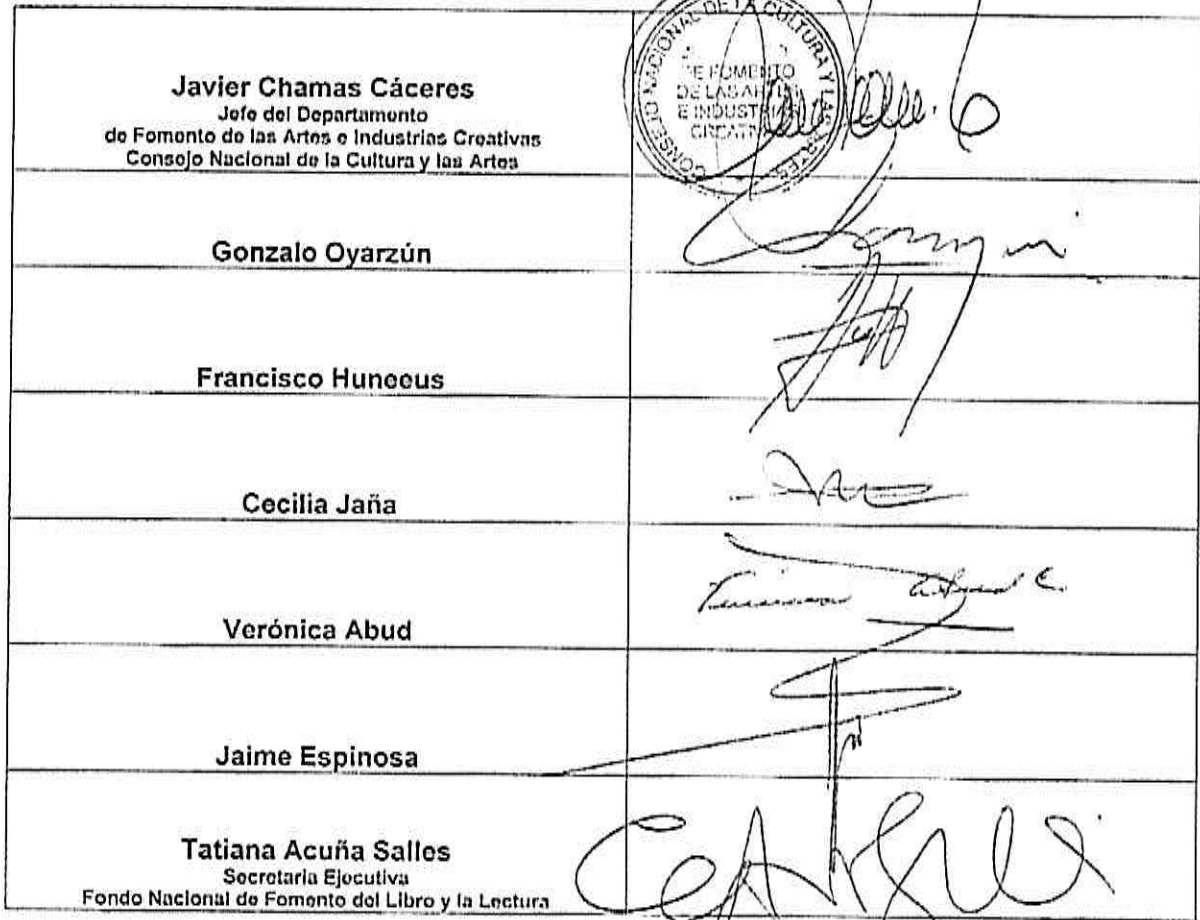 Javier Chamas Cáceres
Jefe del Departamento
de Fomento de las Artes e Industrias Creativas
Consejo Nacional de la Cultura y las Artes
CONSEJO NACIONAL DE LA CULTURA Y LAS ARTES
DE FOMENTO
DE LAS ARTES
E INDUSTRIAS
CREATIVAS
Gonzalo Oyarzún
Francisco Huneeus
Cecilia Jaña
Verónica Abud
Jaime Espinosa
Tatiana Acuña Salles
Secretaria Ejecutiva
Fondo Nacional de Fomento del Libro y la Lectura